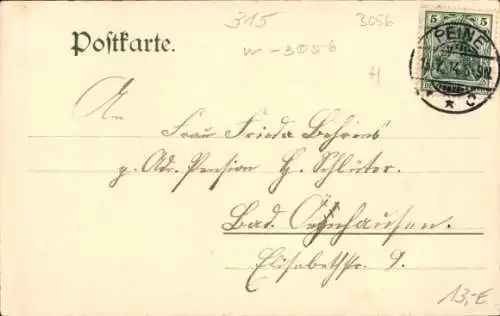 315
3056
Postkarte.
w-3056
5 5
PEINE
H
* * C
An
Frau Frieda Behrens
p. Adr. Pension H. Schlüter.
Bad. Oeynhausen.
Elisabethstr. 9.
13,-E